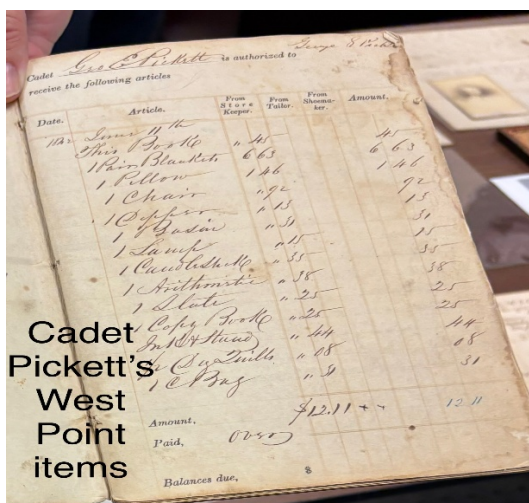 George E Pickett
Cadet Geo E Pickett is authorized to
receive the following articles
Date. Article. From Store Keeper. From Tailor. From Shoemaker. Amount.
1842 June 11th
This Book " 45 45
1 Pair Blankets 6 63 6 63
1 Pillow 1 46 1 46
1 Chair " 92 92
1 Dipper " 15 15
1 Basin " 31 31
1 Lamp " 15 15
1 Candlestick " 35 35
1 Arithmetic " 38 38
1 Slate " 25 25
1 Copy Book " 25 25
Ink & Stand " 44 44
Dz Quills " 08 08
1 C Bag " 31 31
Amount, $12.11 12.11
Paid, over
Balances due, 8
Cadet
Pickett's
West
Point
items